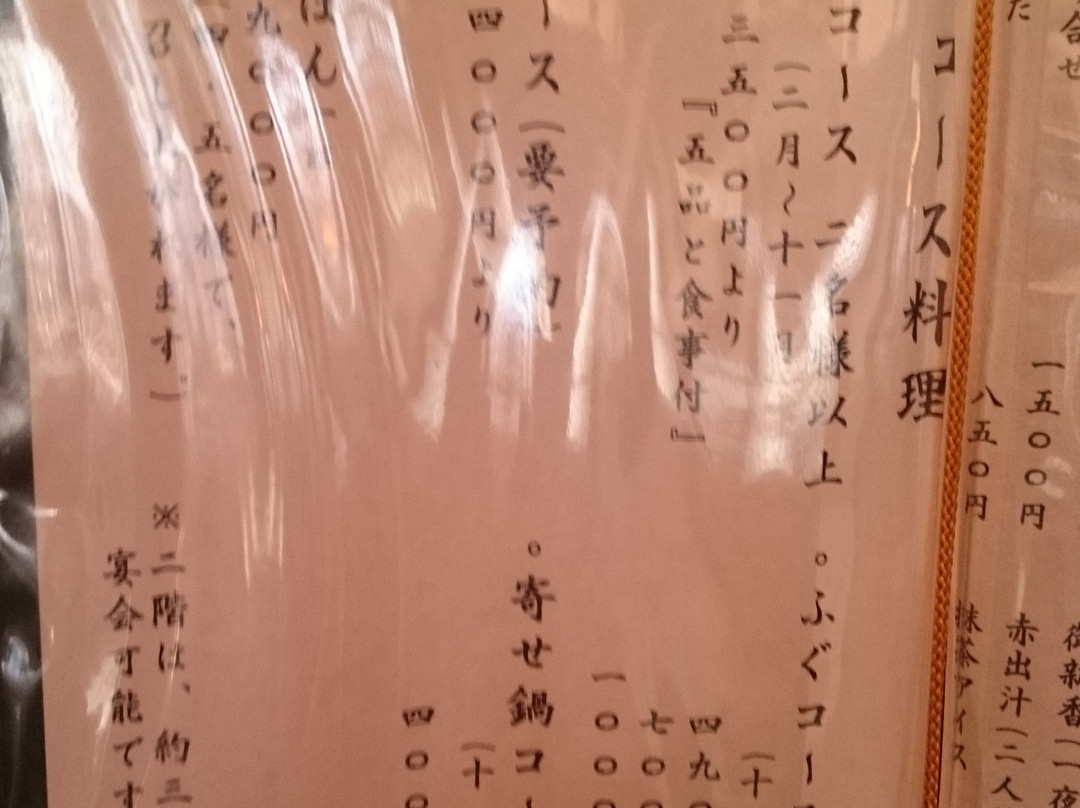 合せ
た
一五〇〇円
八五〇円
御新香(一夜
赤出汁(二人
抹茶アイス
コース料理
コース 二名様以上
(二月~十一月)
三五〇〇円より
『五品と食事付』
。ふぐコース
(十
四九〇
七〇
一〇〇〇
ース(要予約)
四〇〇〇円より
。寄せ鍋コー
(十
四〇〇
はん
九〇〇〇円
五名様で、
召し上がれます。)
※二階は、約三
宴会可能です